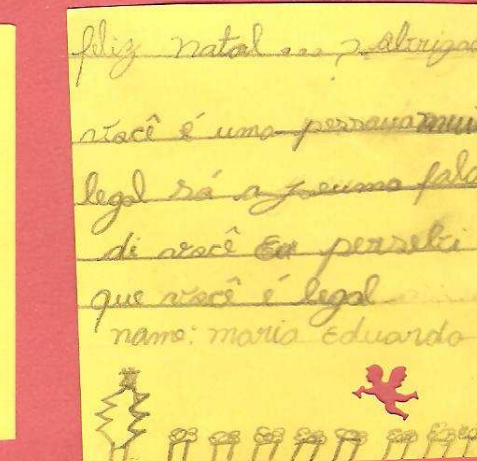 feliz natal ... abrigad
você é uma pessoua mui
legal só a jeuma fala
di você eu perselbi
que você é legal
name: maria Eduarda